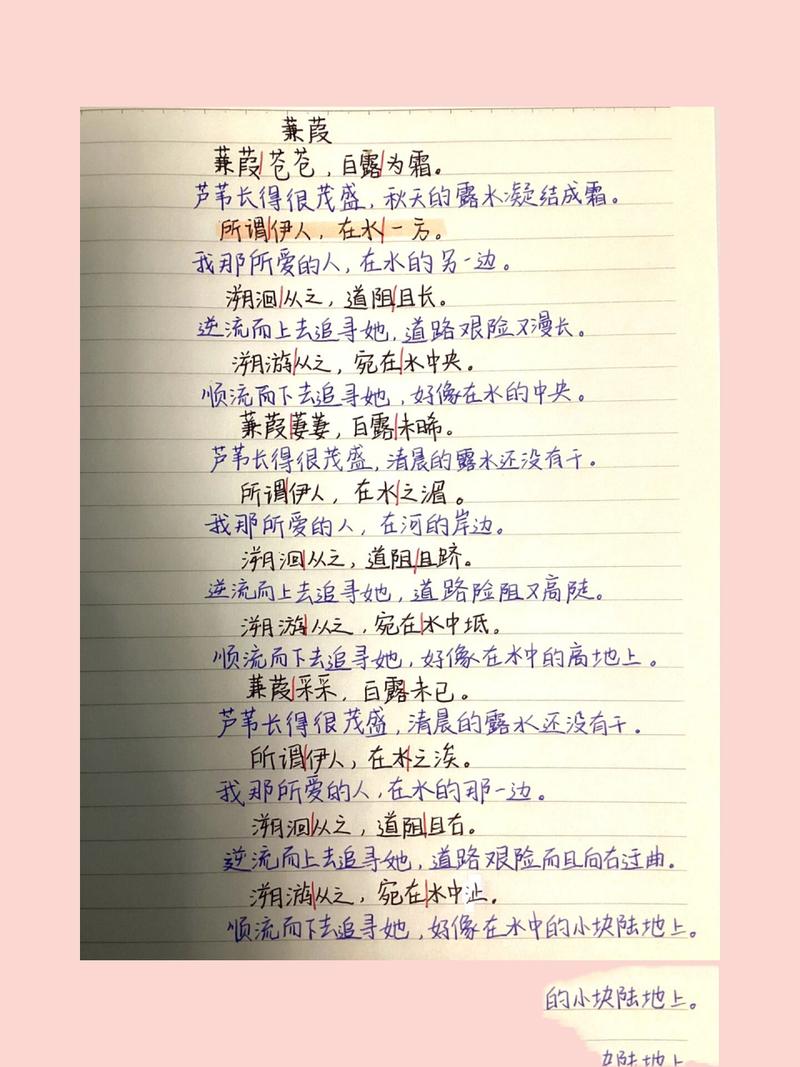 蒹葭
蒹葭苍苍，白露为霜。
芦苇长得很茂盛，秋天的露水凝结成霜。
所谓伊人，在水一方。
我那所爱的人，在水的另一边。
溯洄从之，道阻且长。
逆流而上去追寻她，道路艰险又漫长。
溯游从之，宛在水中央。
顺流而下去追寻她，好像在水的中央。
蒹葭萋萋，白露未晞。
芦苇长得很茂盛，清晨的露水还没有干。
所谓伊人，在水之湄。
我那所爱的人，在河的岸边。
溯洄从之，道阻且跻。
逆流而上去追寻她，道路险阻又高陡。
溯游从之，宛在水中坻。
顺流而下去追寻她，好像在水中的高地上。
蒹葭采采，白露未已。
芦苇长得很茂盛，清晨的露水还没有干。
所谓伊人，在水之涘。
我那所爱的人，在水的那一边。
溯洄从之，道阻且右。
逆流而上去追寻她，道路艰险而且向右迂曲。
溯游从之，宛在水中沚。
顺流而下去追寻她，好像在水中的小块陆地上。
的小块陆地上。
陆地上